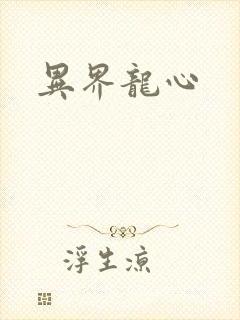 異界龍心
浮生涼